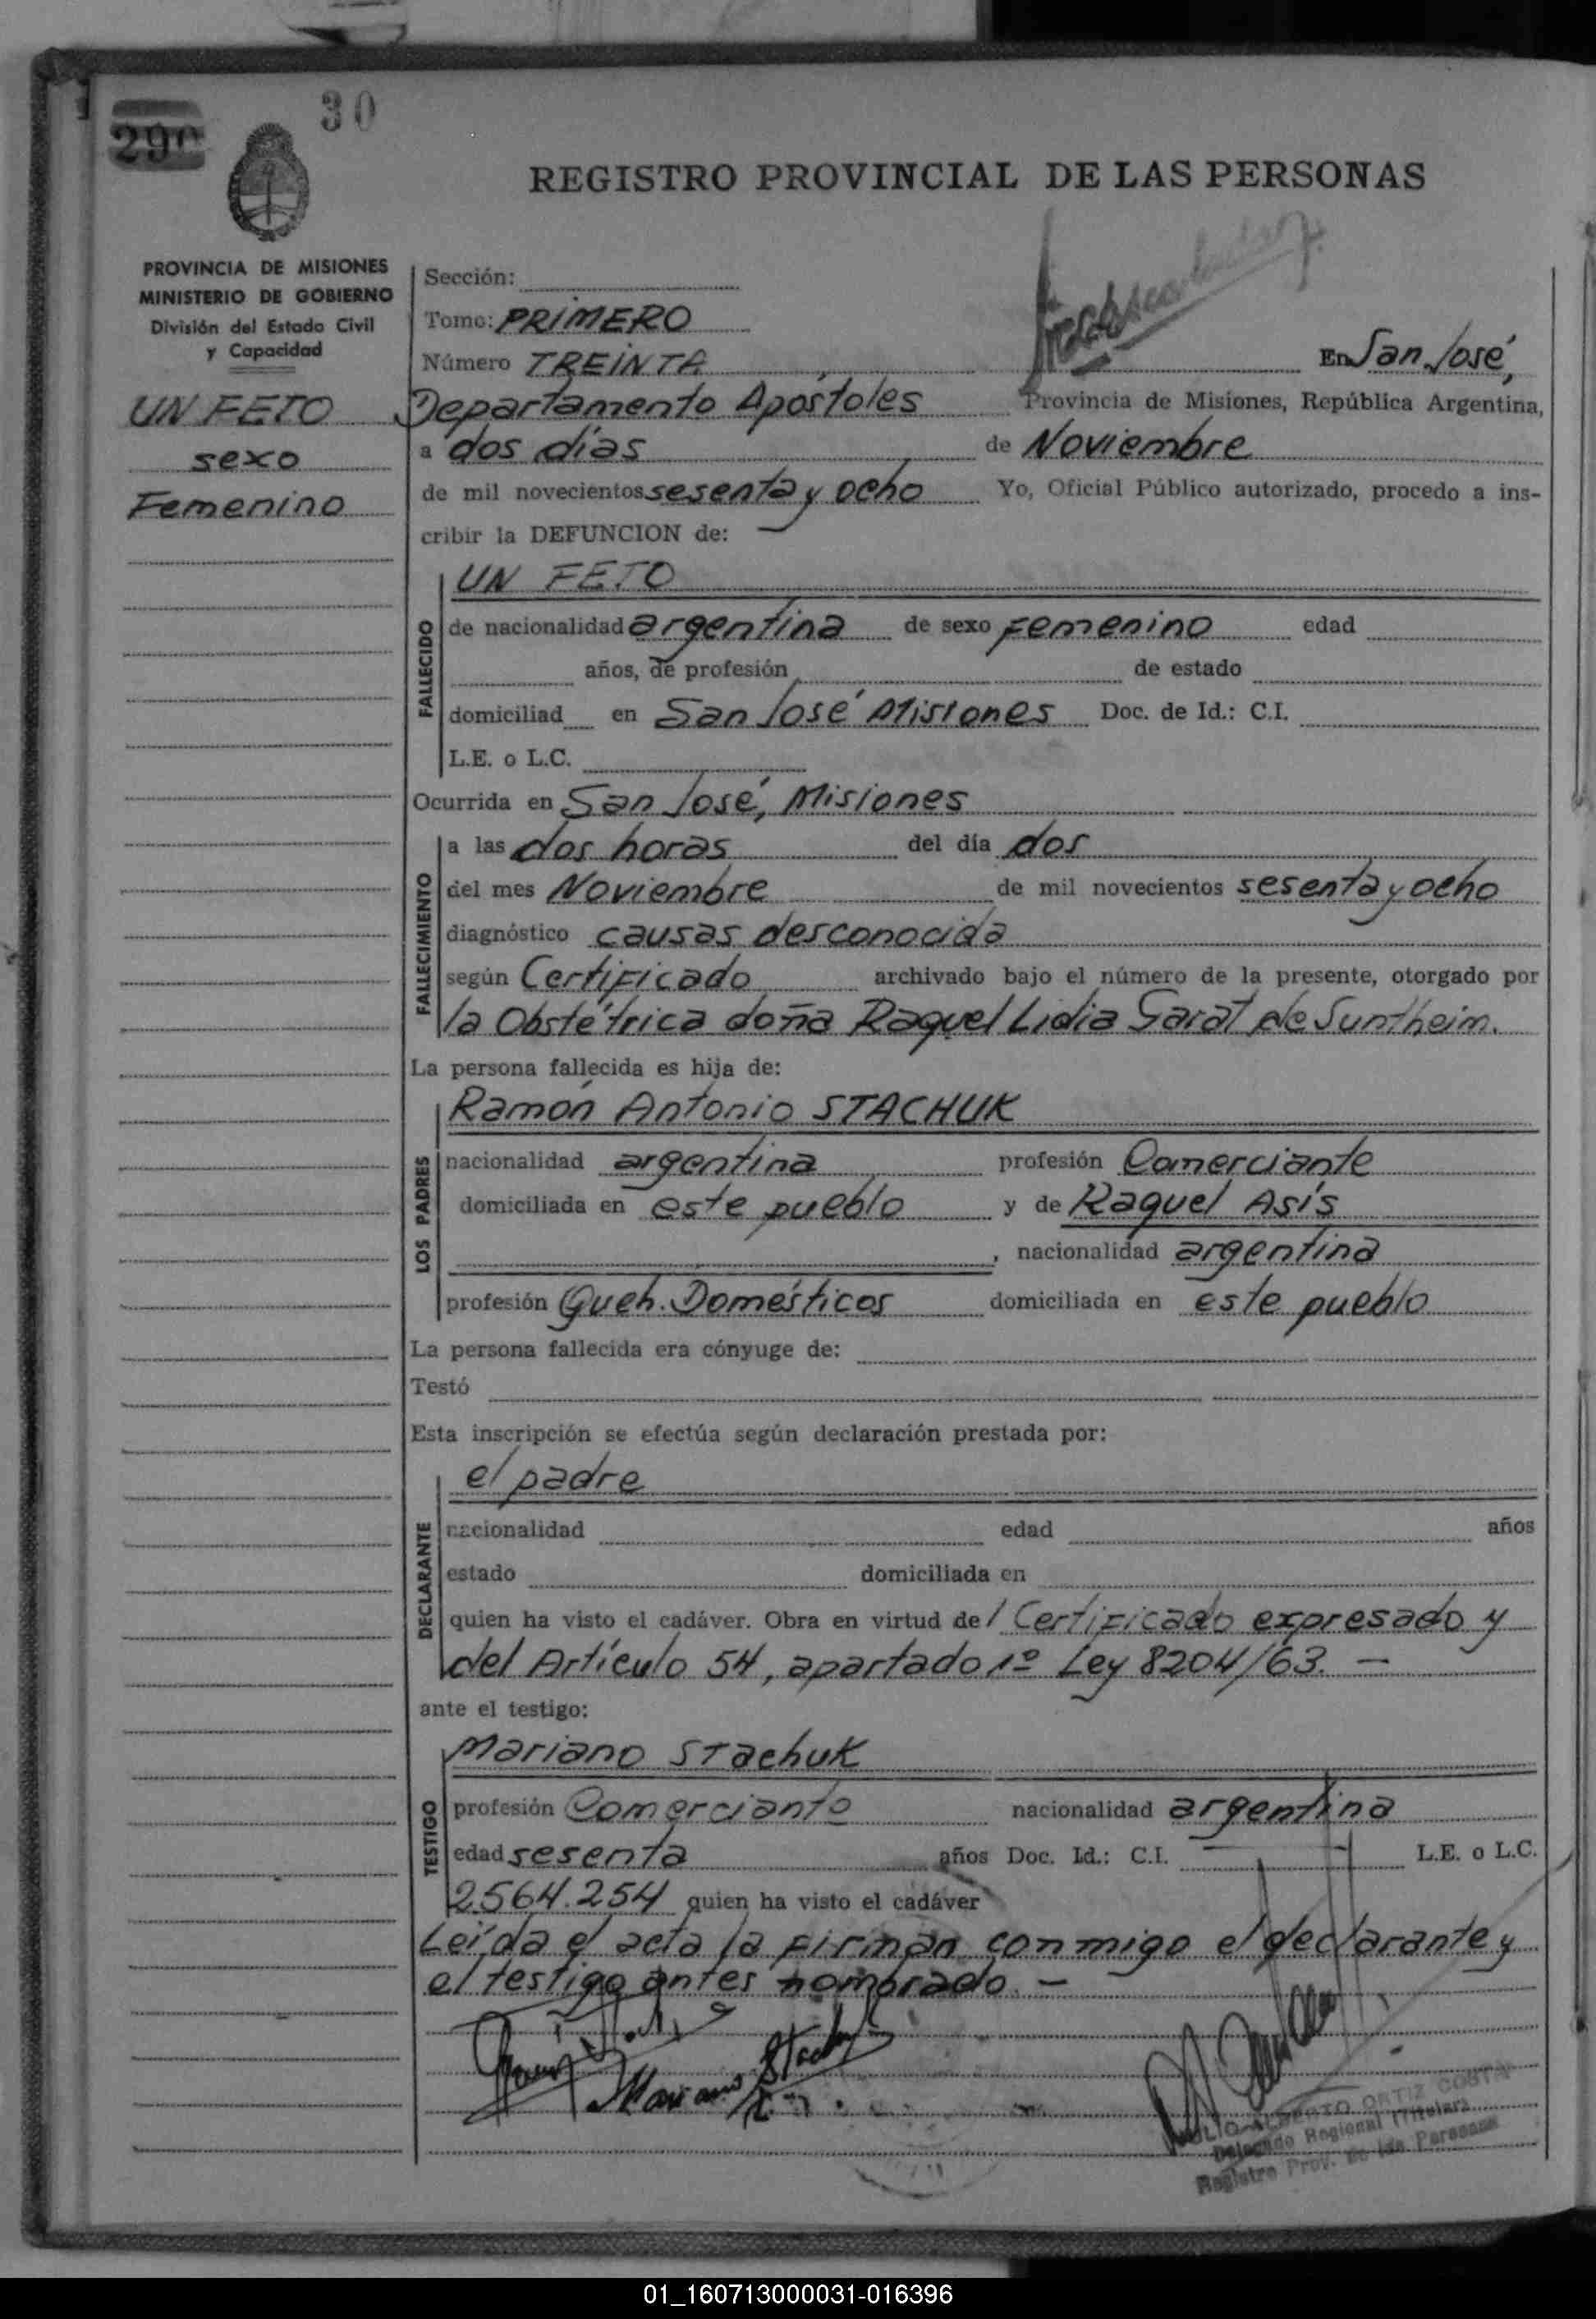 30
290
REGISTRO PROVINCIAL DE LAS PERSONAS
PROVINCIA DE MISIONES
MINISTERIO DE GOBIERNO
División del Estado Civil
y Capacidad
UN FETO
sexo
Femenino
Sección:
Tomo: PRIMERO
Número TREINTA En San José,
Departamento Apóstoles Provincia de Misiones, República Argentina,
a dos días de Noviembre
de mil novecientos sesenta y ocho Yo, Oficial Público autorizado, procedo a ins-
cribir la DEFUNCION de:
FALLECIDO
UN FETO
de nacionalidad argentina de sexo Femenino edad
años, de profesión de estado
domiciliad en San José Misiones Doc. de Id.: C.I.
L.E. o L.C.
Ocurrida en San José, Misiones
FALLECIMIENTO
a las dos horas del día dos
del mes Noviembre de mil novecientos sesenta y ocho
diagnóstico causas desconocida
según Certificado archivado bajo el número de la presente, otorgado por
la Obstétrica doña Raquel Lidia Garat de Suntheim.
La persona fallecida es hija de:
LOS PADRES
Ramón Antonio STACHUK
nacionalidad argentina profesión Comerciante
domiciliada en este pueblo y de Raquel Asís
, nacionalidad argentina
profesión Queh. Domésticos domiciliada en este pueblo
La persona fallecida era cónyuge de:
Testó
Esta inscripción se efectúa según declaración prestada por:
DECLARANTE
el padre
nacionalidad edad años
estado domiciliada en
quien ha visto el cadáver. Obra en virtud de l Certificado expresado y
del Artículo 54, apartado 1º Ley 8204/63. —
ante el testigo:
TESTIGO
Mariano Stachuk
profesión Comerciante nacionalidad argentina
edad sesenta años Doc. Id.: C.I. — L.E. o L.C.
2.564.254 quien ha visto el cadáver
Leída el acta la firman conmigo el declarante y
el testigo antes nombrado. —
Mariano Stachuk
JULIO ALBERTO ORTIZ COSTA
Delegado Regional (Titular)
Registro Prov. de las Personas
01_160713000031-016396